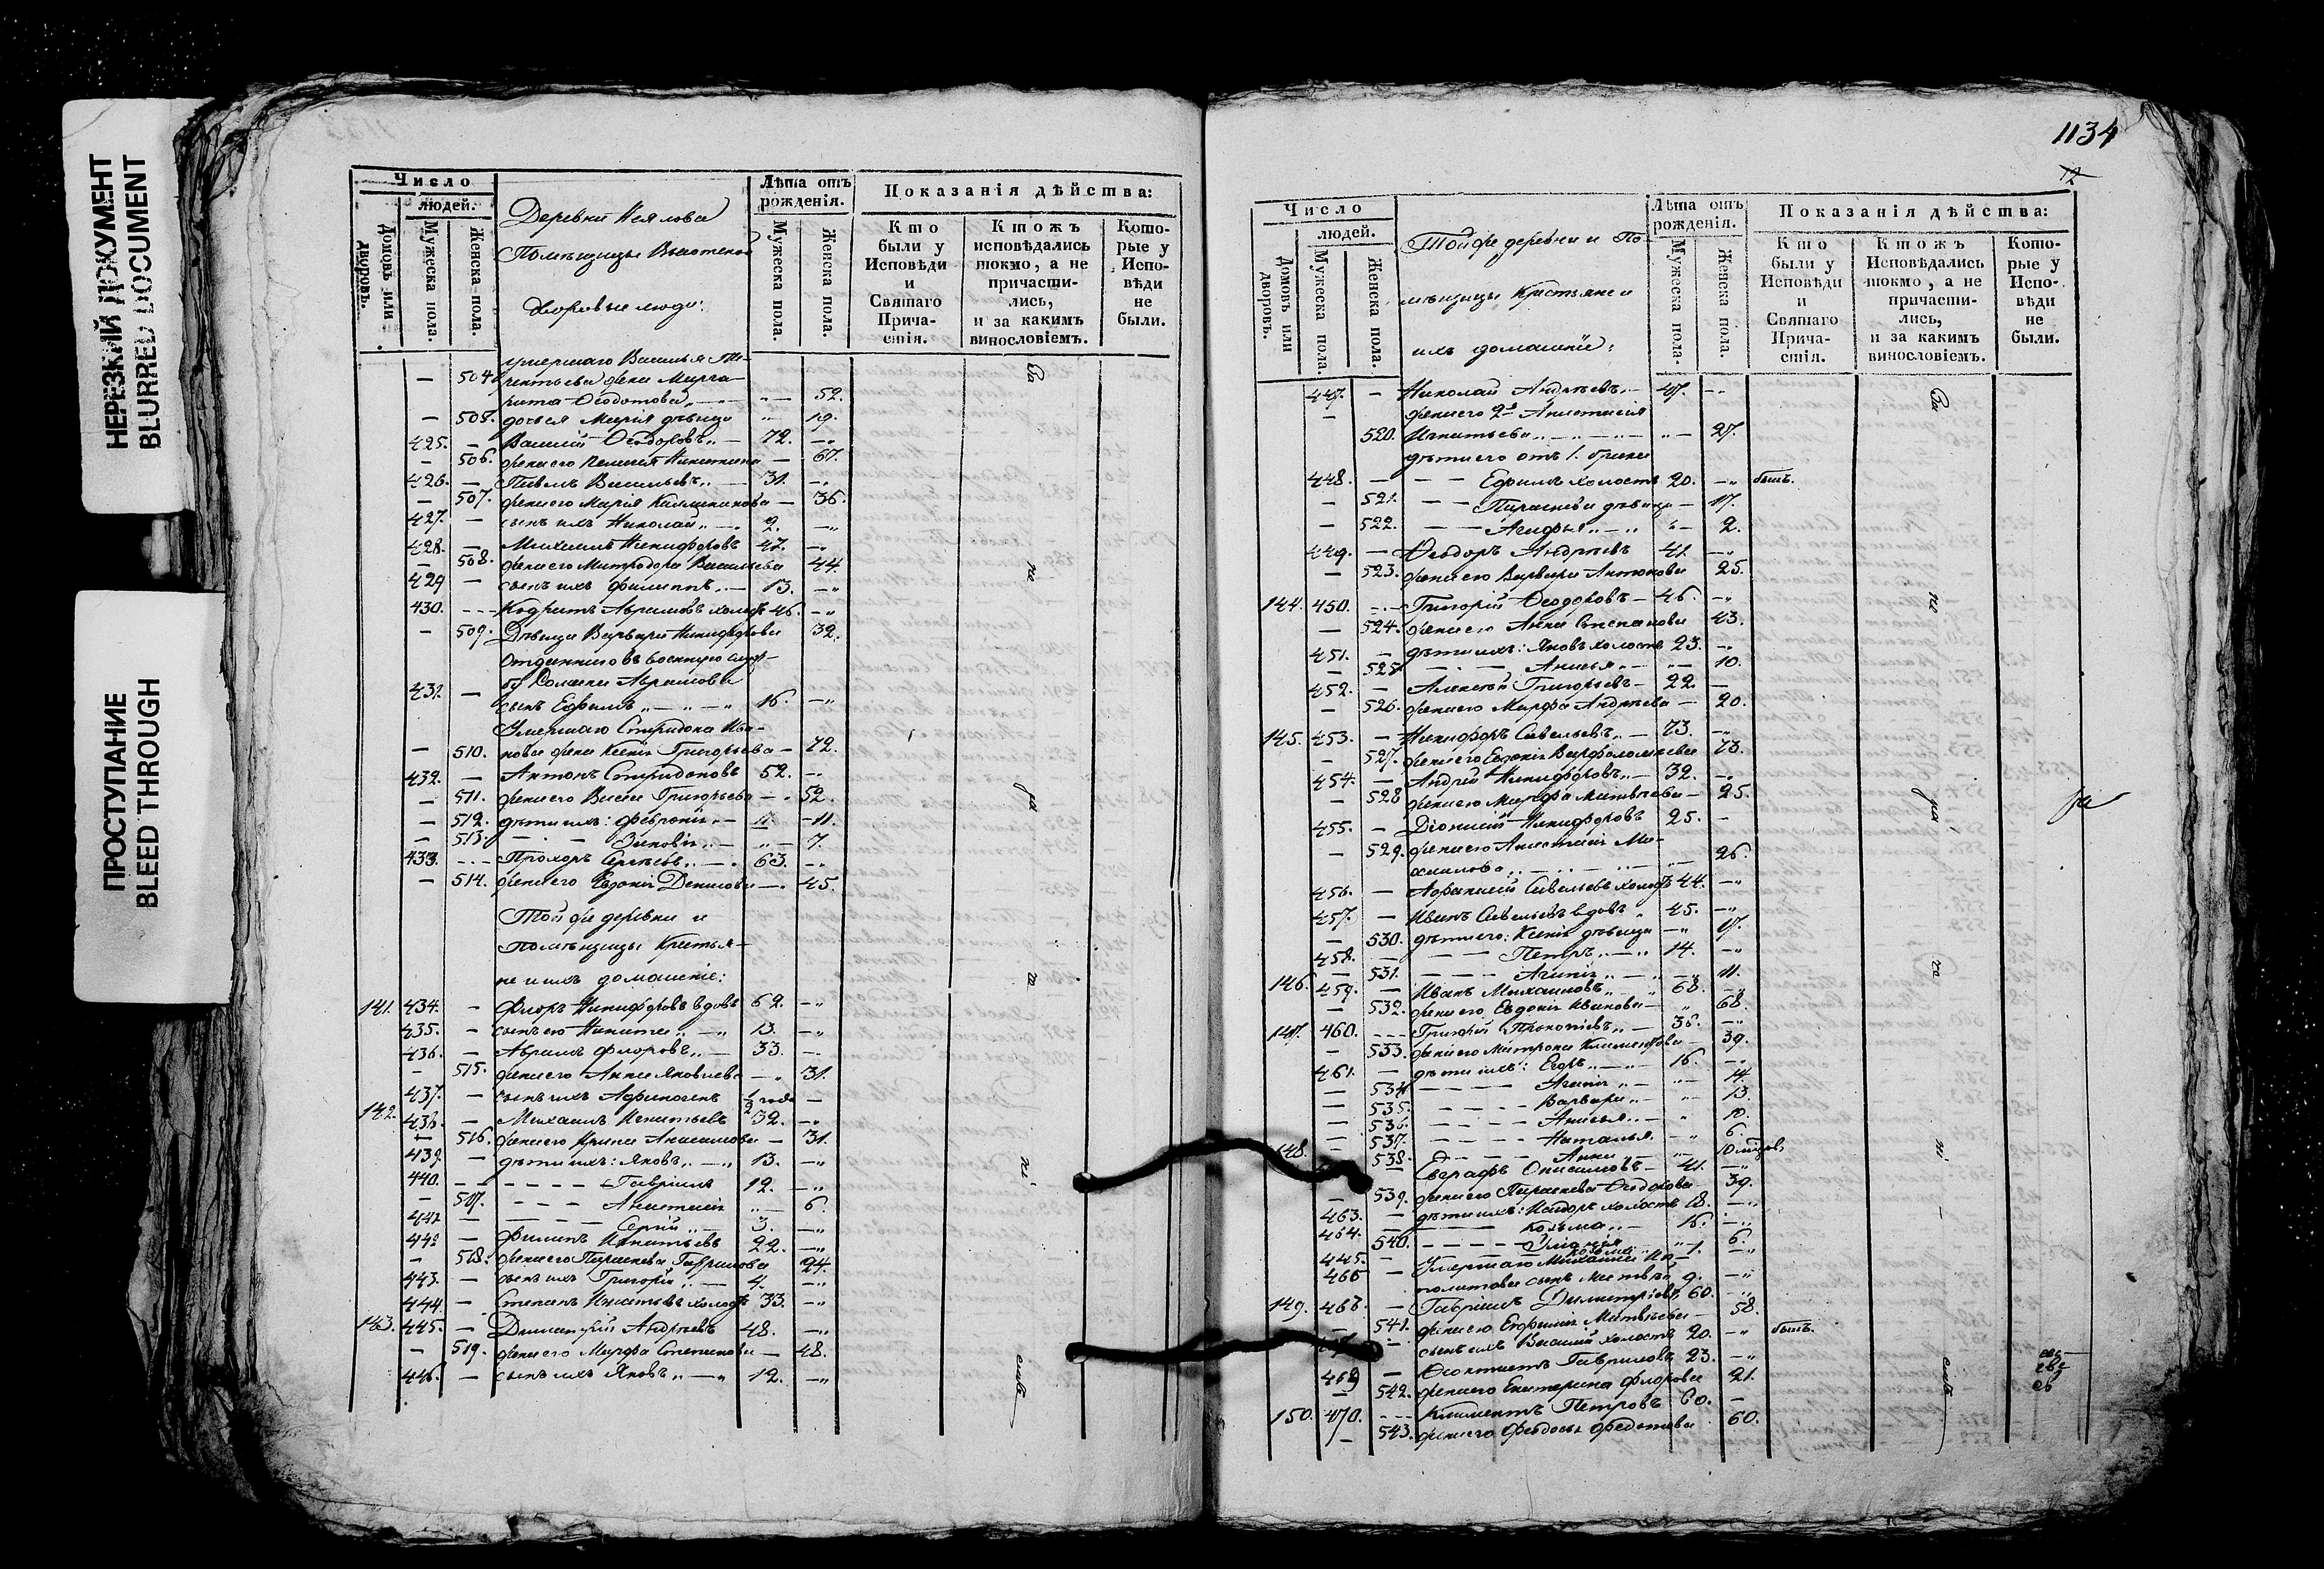 НЕРЕЗКИЙ ДОКУМЕНТ
BLURRED DOCUMENT
ПРОСТУПАНИЕ
BLEED THROUGH
Число
людей.
Домовъ или дворовъ.
Мужеска пола.
Женска пола.
Деревни
Помѣщицы
Дворовые люди:
Лѣта отъ рожденія.
Мужеска пола.
Женска пола.
Показанія дѣйства:
Кто были у Исповѣди и Святаго Причастія.
Ктожъ исповѣдались токмо, а не причастились, и за какимъ винословіемъ.
Которые у Исповѣди не были.
умершаго Василья Те-
504. рентьева жена Марга-
рита Ѳеодотова 52.
505. дочь ея Марія дѣвица 19.
425. Василій Ѳеодоровъ 72.
506. жена его Пелагея Никитина 67.
426. Павелъ Васильевъ 31.
507. жена его Марія 36.
427. сынъ ихъ Николай 2.
428. Михаилъ Никифоровъ 47.
508. жена его Митродора Васильева 44.
429 сынъ ихъ Филиппъ 13.
430. Кодратъ Абрамовъ холостъ 46.
509. Дѣвица Варвара Никифорова 32.
Отданнаго въ военную служ-
бу Абрамова
431. сынъ Ефимъ 16.
Умершаго Спиридона Ива-
510. нова жена Ксенія Григорьева 72.
432. Антонъ Спиридоновъ 52.
511. жена его Васса Григорьева 52.
512. дѣти ихъ: Февронія 11.
513. Зиновія 7.
433. Прохоръ Сергѣевъ 63.
514. жена его Евдокія Денисова 45.
Той же деревни и
помѣщицы Крестья-
не и ихъ домашніе:
141. 434. Флоръ Никифоровъ вдовъ 62.
435. сынъ его Никита 13.
436. Абрамъ Флоровъ 33.
515. жена его Анна Яковлева 31.
437. сынъ ихъ Афиногенъ 1/2 года
142. 438. Михаилъ Игнатьевъ 32.
516. жена его Ирина 31.
439. дѣти ихъ: Яковъ 13.
440. Гавріилъ 12.
517. Анастасія 6.
441 Сергій 3.
442 Филипъ Игнатьевъ 22.
518. жена его Параскева Гаврилова 24.
443. сынъ ихъ Григорій 4.
444. Степанъ Игнатьевъ холостъ 33.
143. 445. Димитрій Андреевъ 48.
519. жена его Марфа Степанова 48.
446. сынъ ихъ Яковъ 12.
1134
12
Число
людей.
Домовъ или дворовъ.
Мужеска пола.
Женска пола.
Той же деревни и По-
мѣщицы Крестьяне и
ихъ домашніе:
Лѣта отъ рожденія.
Мужеска пола.
Женска пола.
Показанія дѣйства:
Кто были у Исповѣди и Святаго Причастія.
Ктожъ Исповѣдались токмо, а не причастились, и за какимъ винословіемъ.
Которые у Исповѣди не были.
447. Николай Андреевъ 47.
жена его 2я Анастасія
520. Игнатьева 27.
дѣти его отъ 1. брака
448. Ефимъ холостъ 20. былъ.
521. Параскева дѣвица 17.
522. Агафья 2.
449. Ѳеодоръ Андреевъ 41.
523. жена его Варвара Антонова 25.
144. 450. Григорій Ѳеодоровъ 46.
524. жена его Анна Степанова 43.
451. дѣти ихъ: Яковъ холостъ 23.
525 Анисья 10.
452. Алексѣй Григорьевъ 22.
526. жена его Марфа Андреева 20.
145. 453. Никифоръ Савельевъ 73.
527. жена его Евдокія Варфоломеева 73.
454. Андрей Никифоровъ 32.
528 жена его Марфа Матвѣева 25.
455. Діонисій Никифоровъ 25.
529. жена его Анастасія Ми-
хаилова 26.
456. Афанасій Савельевъ холостъ 44.
457. Иванъ Савельевъ вдовъ 45.
530. дѣти его: Ксенія дѣвица 17.
458. Петръ 14.
531. Агапія 11.
146. 459. Иванъ Михаиловъ 68.
532. жена его Евдокія Иванова 68.
147. 460. Григорій Прокопіевъ 38.
533. жена его Матрона Климентова 39.
461. дѣти ихъ: Егоръ 16.
534 Агапія 14.
535. Варвара 13.
536. Анисья 10.
537. Наталья 6.
538. Анна
148. Евграфъ Онисимовъ 41.
539. жена его Параскева Ѳеодорова 39.
463. дѣти ихъ: Исидоръ холостъ 18.
464. Козьма 16.
540. 6.
Умершаго
466 сынъ Матвѣй 9.
149. Гавріилъ Димитріевъ 60.
541. жена его Евфимія Матвѣева 58.
сынъ ихъ Василій холостъ 20. былъ.
469 Гавриловъ 23.
542. жена его Екатерина Флорова 21.
150. 470. Климентъ Петровъ 60.
543. жена его Федосья Федотова 60.